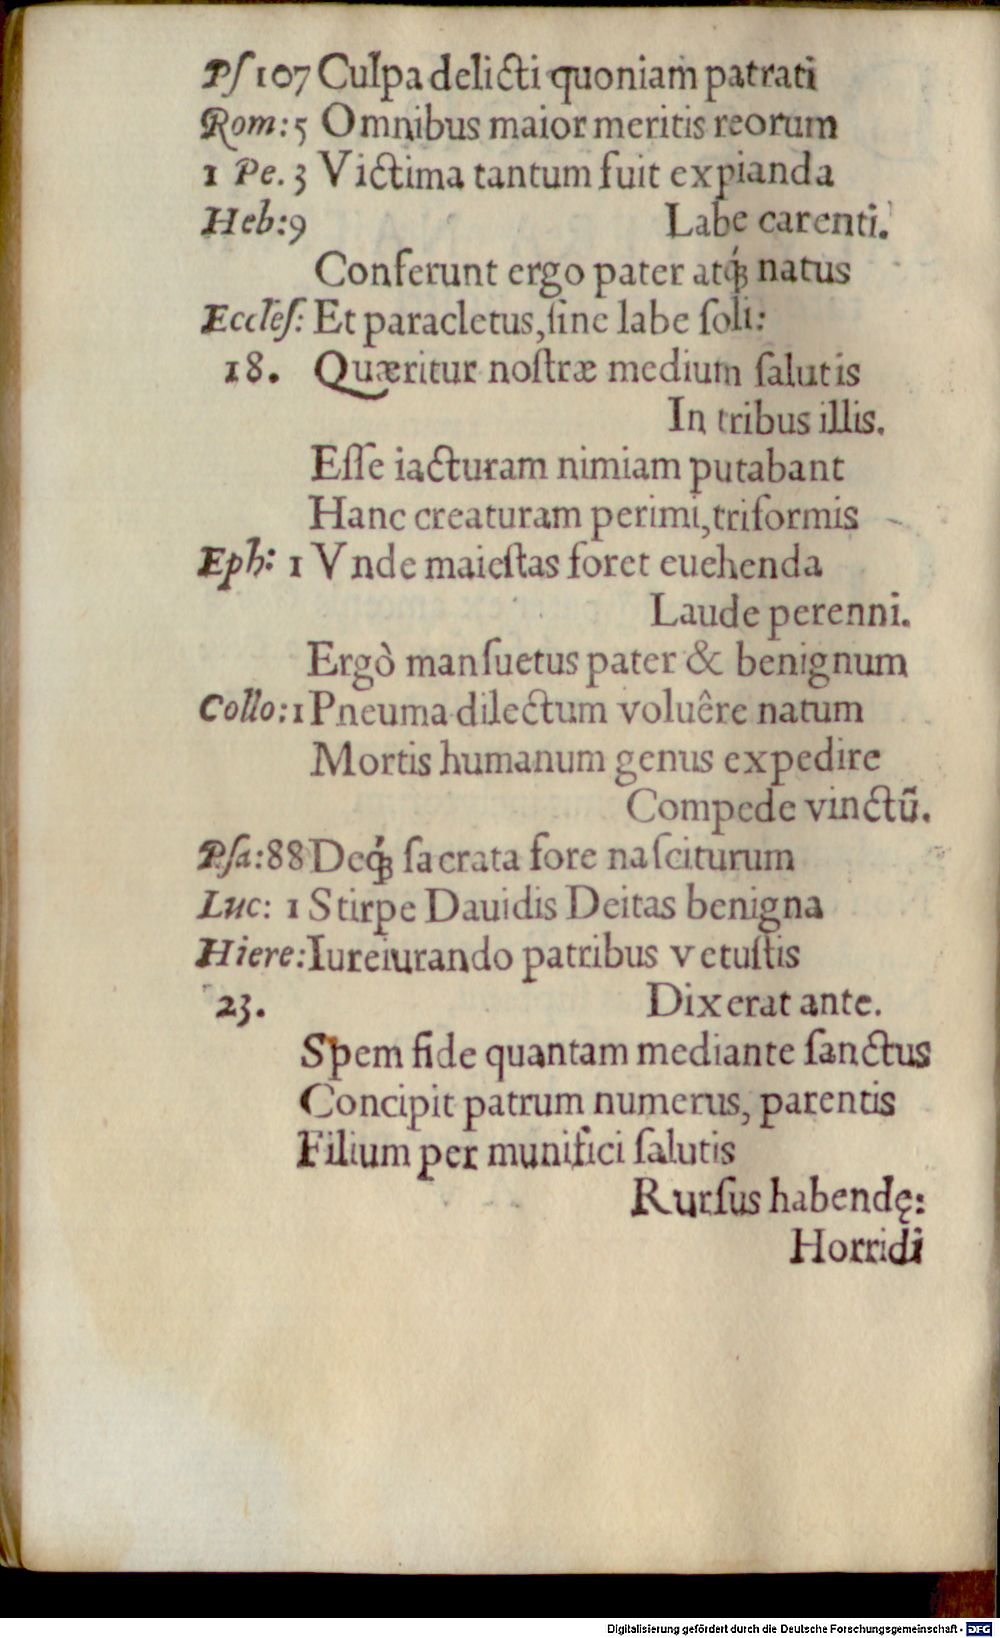 Pſ 107 Culpa delicti quoniam patrati
Rom: 5 Omnibus maior meritis reorum
1 Pe. 3 Victima tantum fuit expianda
Heb: 9 Labe carenti.
Conferunt ergo pater atq́ꝫ natus
Eccleſ: Et paracletus, ſine labe ſoli:
18. Quæritur noſtræ medium ſalutis
In tribus illis.
Eſſe iacturam nimiam putabant
Hanc creaturam perimi, triformis
Eph: 1 Vnde maieſtas foret euehenda
Laude perenni.
Ergò manſuetus pater & benignum
Collo: 1 Pneuma dilectum voluêre natum
Mortis humanum genus expedire
Compede vinctũ.
Pſa: 88 Deq́ꝫ ſacrata fore naſciturum
Luc: 1 Stirpe Dauidis Deitas benigna
Hiere: Iureiurando patribus vetuſtis
23. Dixerat ante.
Spem fide quantam mediante ſanctus
Concipit patrum numerus, parentis
Filium per munifici ſalutis
Rurſus habendę:
Horridi
Digitalisierung gefördert durch die Deutsche Forschungsgemeinschaft - DFG